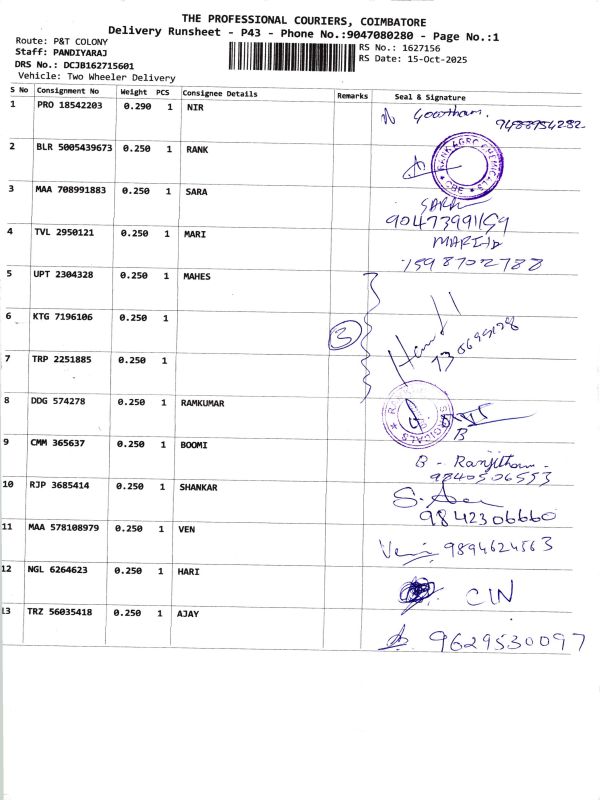 THE PROFESSIONAL COURIERS, COIMBATORE
Delivery Runsheet - P43 - Phone No.:9047080280 - Page No.:1
Route: P&T COLONY
RS No.: 1627156
Staff: PANDIYARAJ
RS Date: 15-Oct-2025
DRS No.: DCJB162715601
Vehicle: Two Wheeler Delivery
S No Consignment No Weight PCS Consignee Details Remarks Seal & Signature
1 PRO 18542203 0.290 1 NIR Gowtham.
2 BLR 5005439673 0.250 1 RANK
RANK AGRO CHEMICALS CBE
3 MAA 708991883 0.250 1 SARA SARA
9047399159
4 TVL 2950121 0.250 1 MARI
7598702788
5 UPT 2304328 0.250 1 MAHES
6 KTG 7196106 0.250 1 3
7 TRP 2251885 0.250 1
8 DDG 574278 0.250 1 RAMKUMAR
B
9 CMM 365637 0.250 1 BOOMI B - Ranjitham -
9840506553
10 RJP 3685414 0.250 1 SHANKAR
9842306660
11 MAA 578108979 0.250 1 VEN 9894624563
12 NGL 6264623 0.250 1 HARI CIN
13 TRZ 56035418 0.250 1 AJAY 9629530097